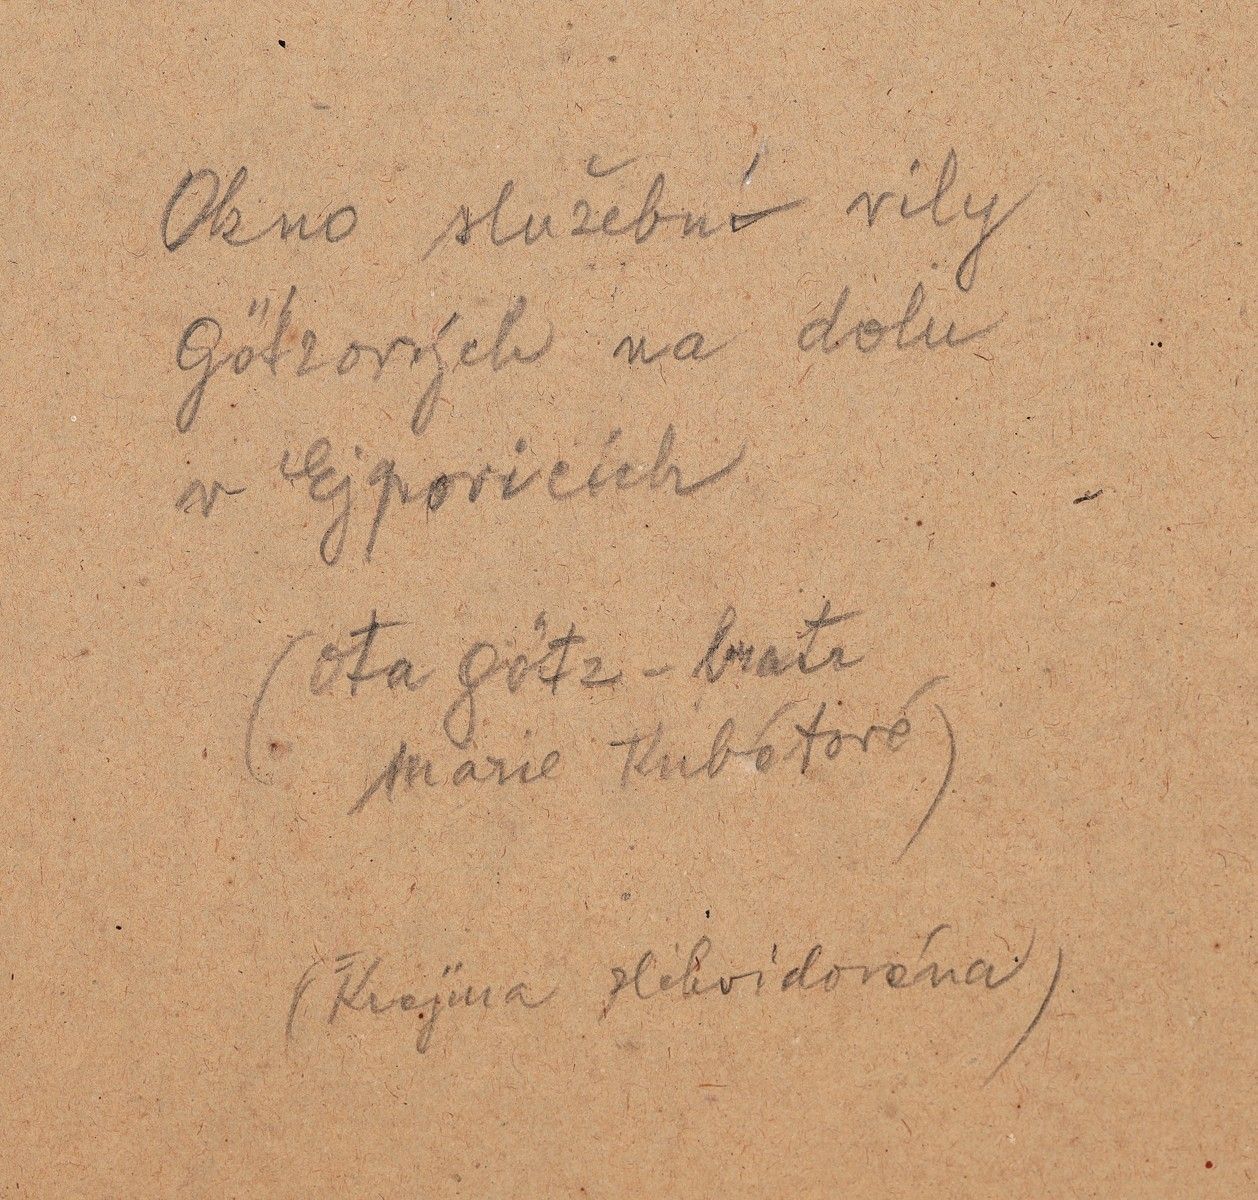 Okno služební vily
Götzových na dolu
v Ejpovicích
(Ota Götz - bratr
Marie Kubátové)
(Krajina zlikvidována)